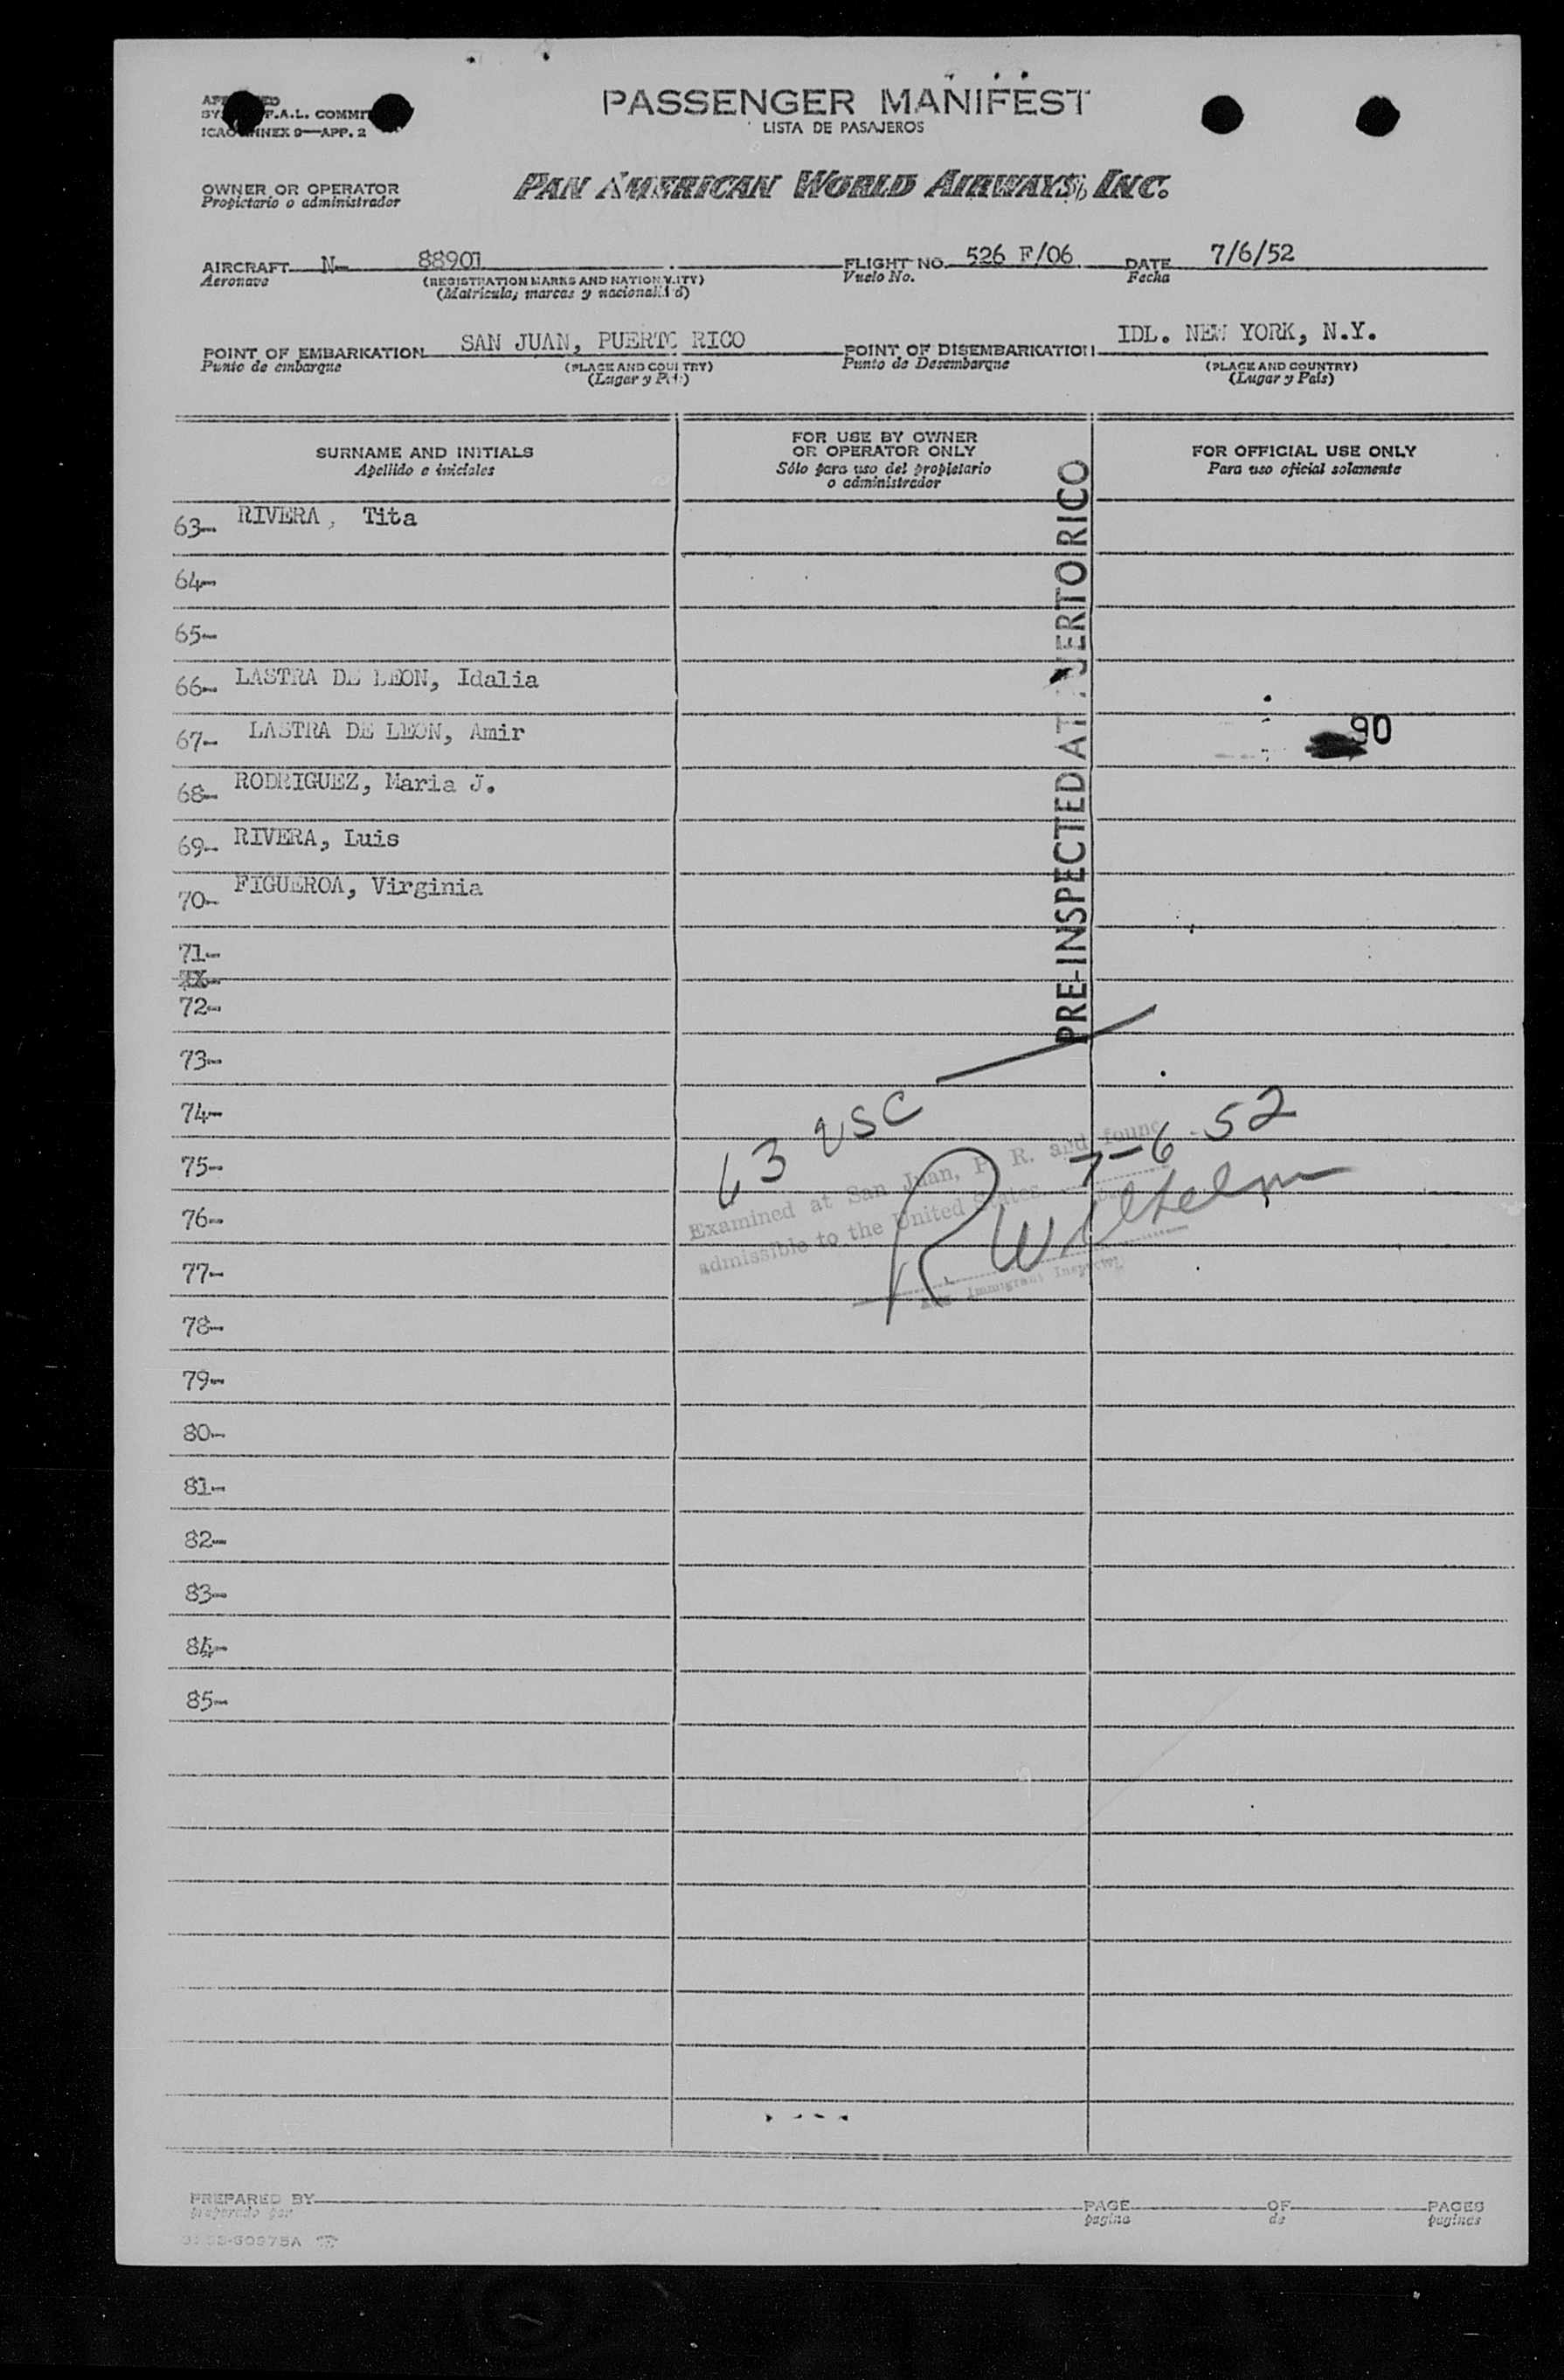 F.A.L. COMMIT
ICAO ANNEX 9—APP. 2
PASSENGER MANIFEST
LISTA DE PASAJEROS
OWNER OR OPERATOR
Propietario o administrador
PAN AMERICAN WORLD AIRWAYS, INC.
AIRCRAFT N- 88901 FLIGHT NO. 526 F/06 DATE 7/6/52
Aeronave (REGISTRATION MARKS AND NATIONALITY) Vuelo No. Fecha
(Matricula, marcas y nacionalidad)
POINT OF EMBARKATION SAN JUAN, PUERTO RICO POINT OF DISEMBARKATION IDL. NEW YORK, N.Y.
Punto de embarque (PLACE AND COUNTRY) Punto de Desembarque (PLACE AND COUNTRY)
(Lugar y País) (Lugar y País)
SURNAME AND INITIALS
Apellido e iniciales
FOR USE BY OWNER
OR OPERATOR ONLY
Sólo para uso del propietario
o administrador
FOR OFFICIAL USE ONLY
Para uso oficial solamente
63- RIVERA, Tita
64-
65-
66- LASTRA DE LEON, Idalia
67- LASTRA DE LEON, Amir
90
68- RODRIGUEZ, Maria J.
69- RIVERA, Luis
70- FIGUEROA, Virginia
PRE-INSPECTED AT PUERTO RICO
71-
72-
73-
74-
63 USC
7-6-52
75-
Examined at San Juan, P. R. and found
76-
admissible to the United States
R Wilhelm
77-
Immigrant Inspector
78-
79-
80-
81-
82-
83-
84-
85-
PREPARED BY PAGE OF PAGES
preparado por pagina de paginas